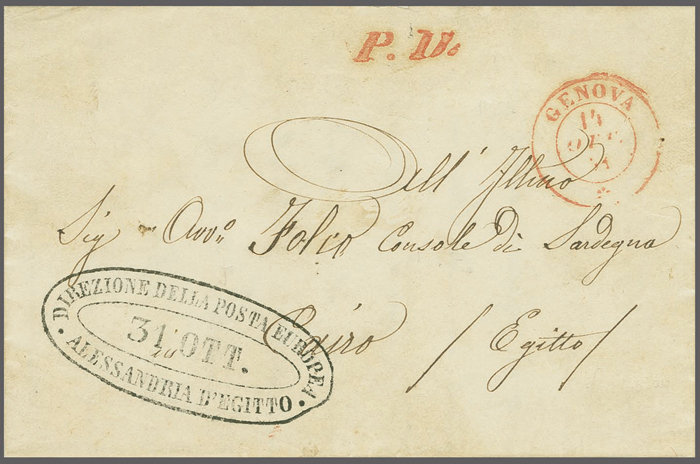 P. D.
GENOVA
14
OTT.
All' Illmo
Sig.r Avv.o Folco Console di Sardegna
Cairo / Egitto /
DIREZIONE DELLA POSTA EUROPEA
31 OTT.
ALESSANDRIA D'EGITTO